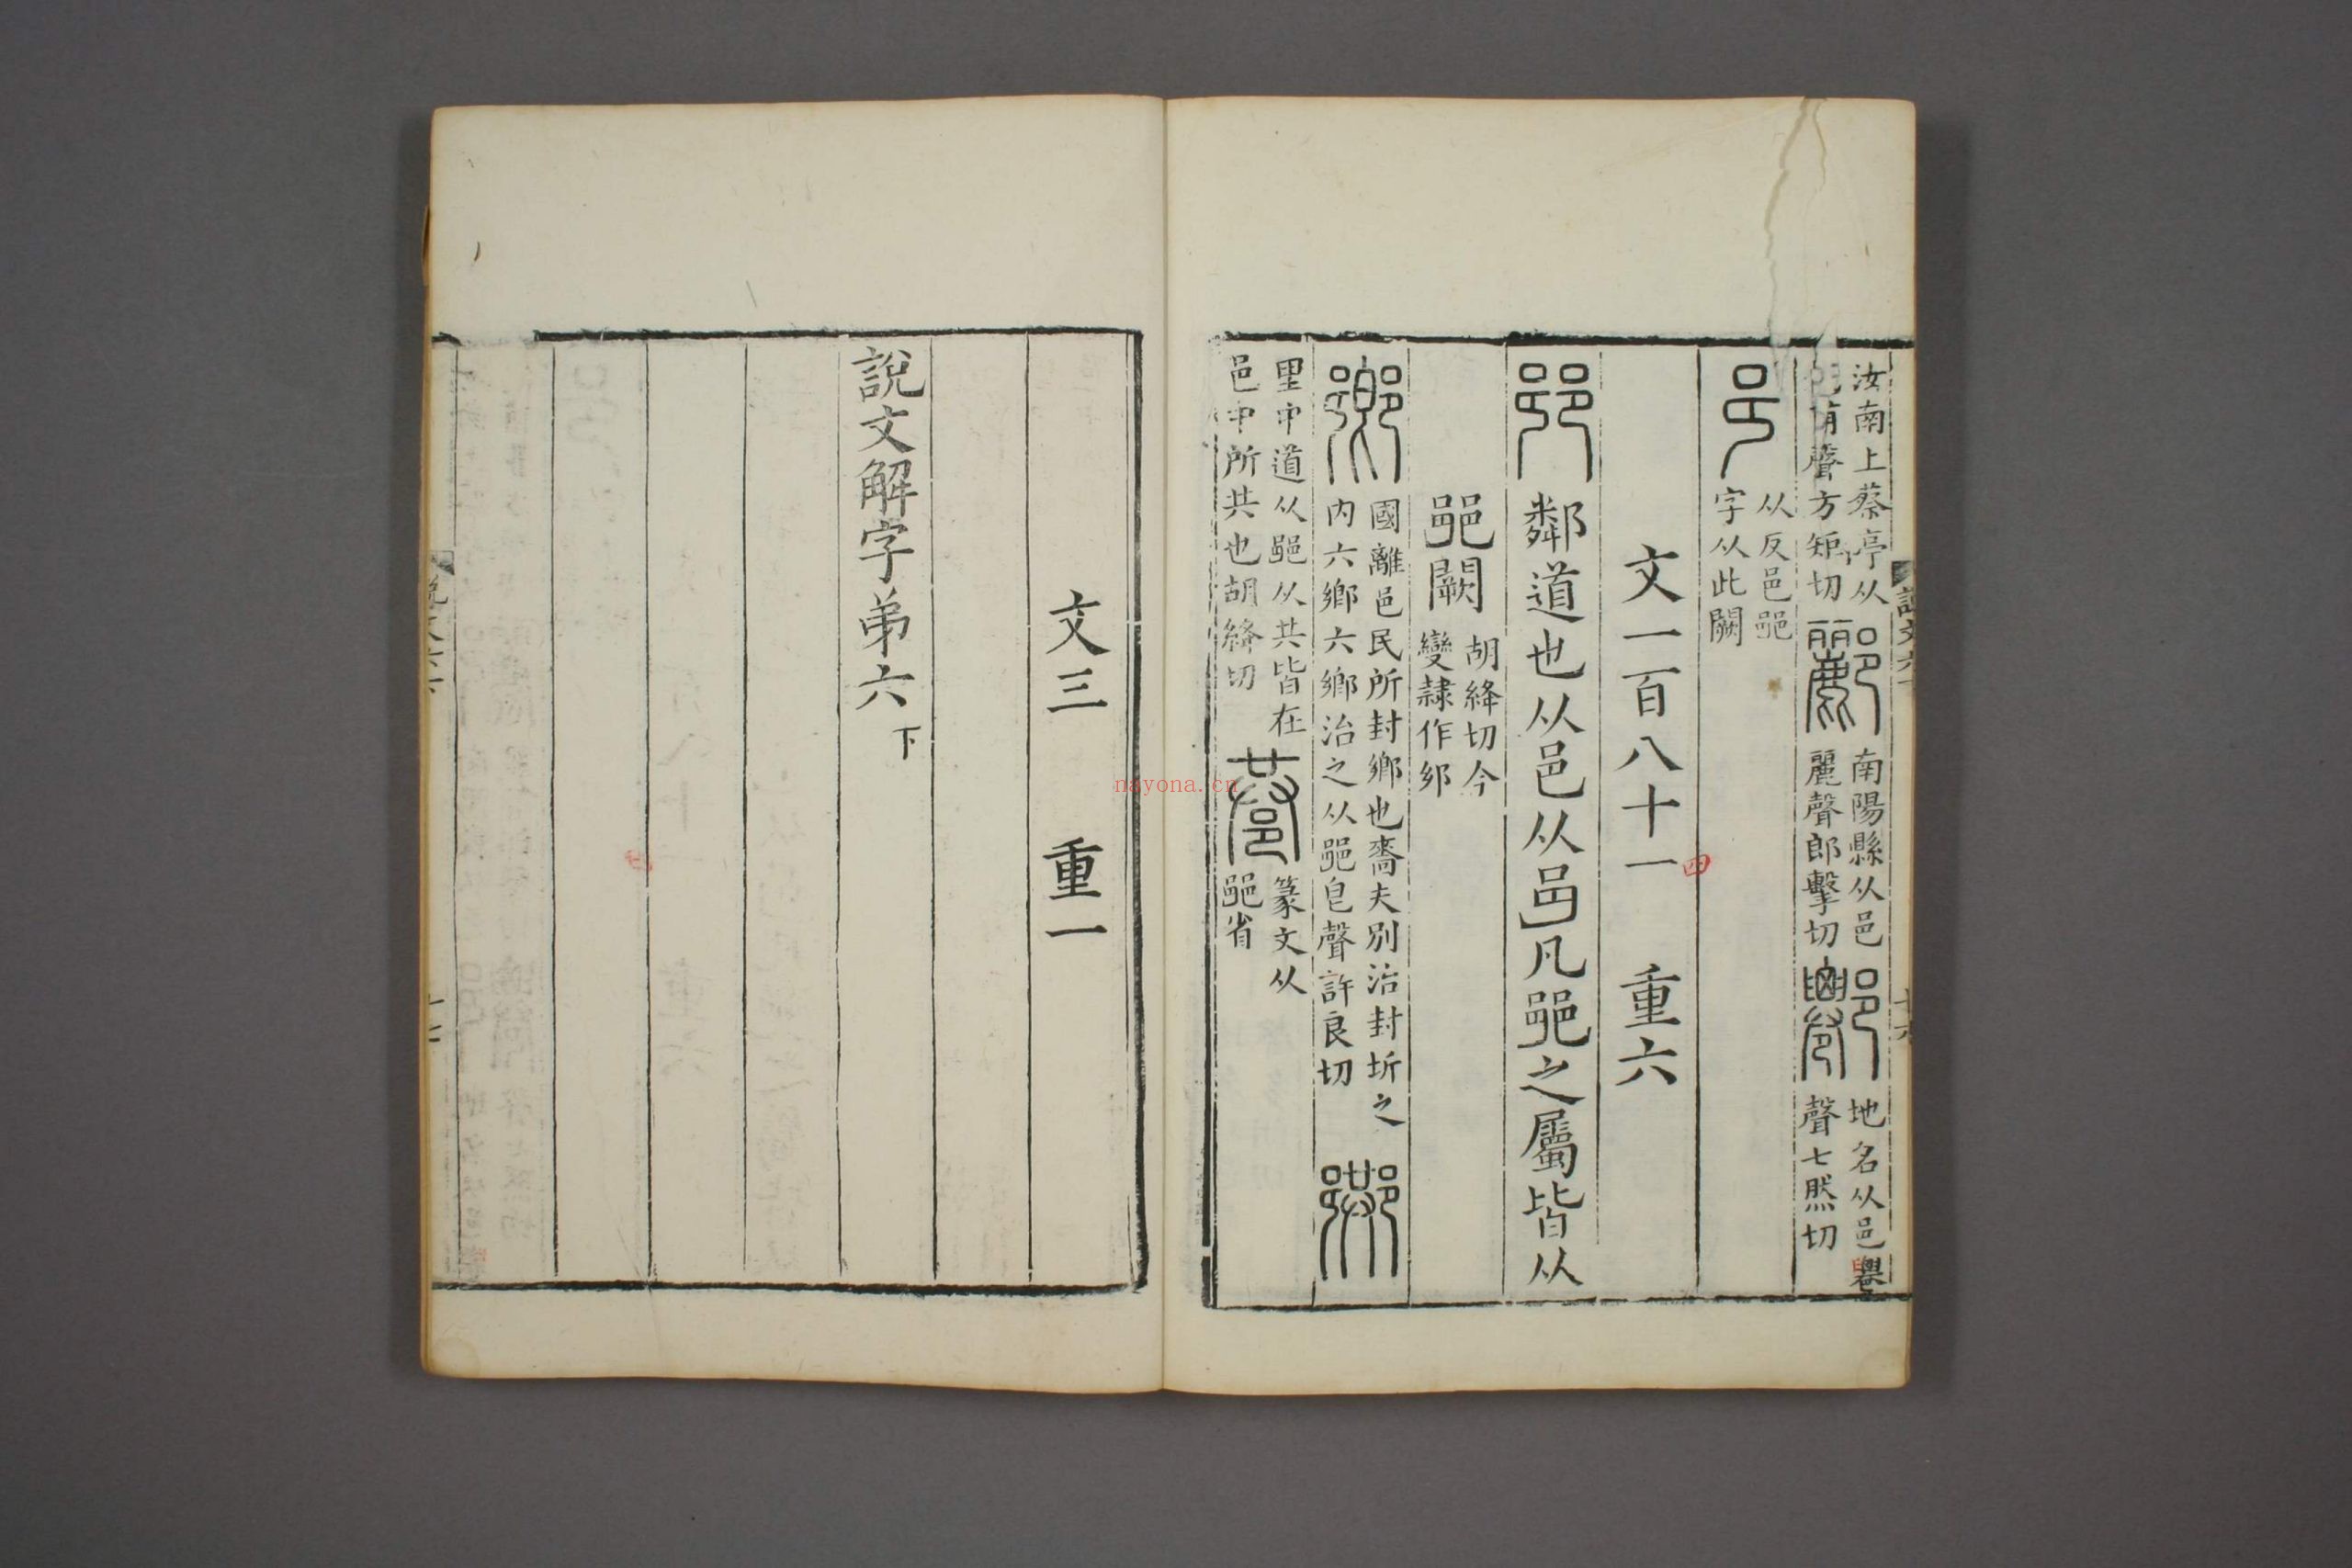 汝南上蔡亭从
邑甫聲方矩切
酈
南陽縣从邑
麗聲郎擊切
䙴
地名从邑䙴
聲七然切
从反邑𨛜
字从此闕
文一百八十一 重六
四
𨛜
鄰道也从邑从𠨍凡𨛜之屬皆从
𨛜闕
胡絳切今
變隷作𨙨
鄉
國離邑民所封鄉也嗇夫別治封圻之
内六鄉六鄉治之从𨛜皀聲許良切
里中道从𨛜从共皆在
邑中所共也胡絳切
巷
篆文从
𨛜省
文三 重一
說文解字弟六 下
nayona.cn